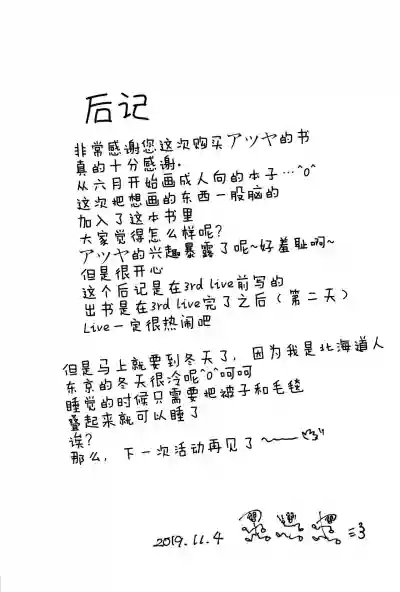 后记
非常感谢您这次购买アツヤ的书
真的十分感谢.
从六月开始画成人向的本子…^o^
这次把想画的东西一股脑的
加入了这本书里
大家觉得怎么样呢?
アツヤ的兴趣暴露了呢~好羞耻啊~
但是很开心
这个后记是在3rd live前写的
出书是在3rd live完了之后（第二天）
Live一定很热闹吧
但是马上就要到冬天了，因为我是北海道人
东京的冬天很冷呢^o^呵呵
睡觉的时候只需要把被子和毛毯
叠起来就可以睡了
诶?
那么，下一次活动再见了~
2019.11.4